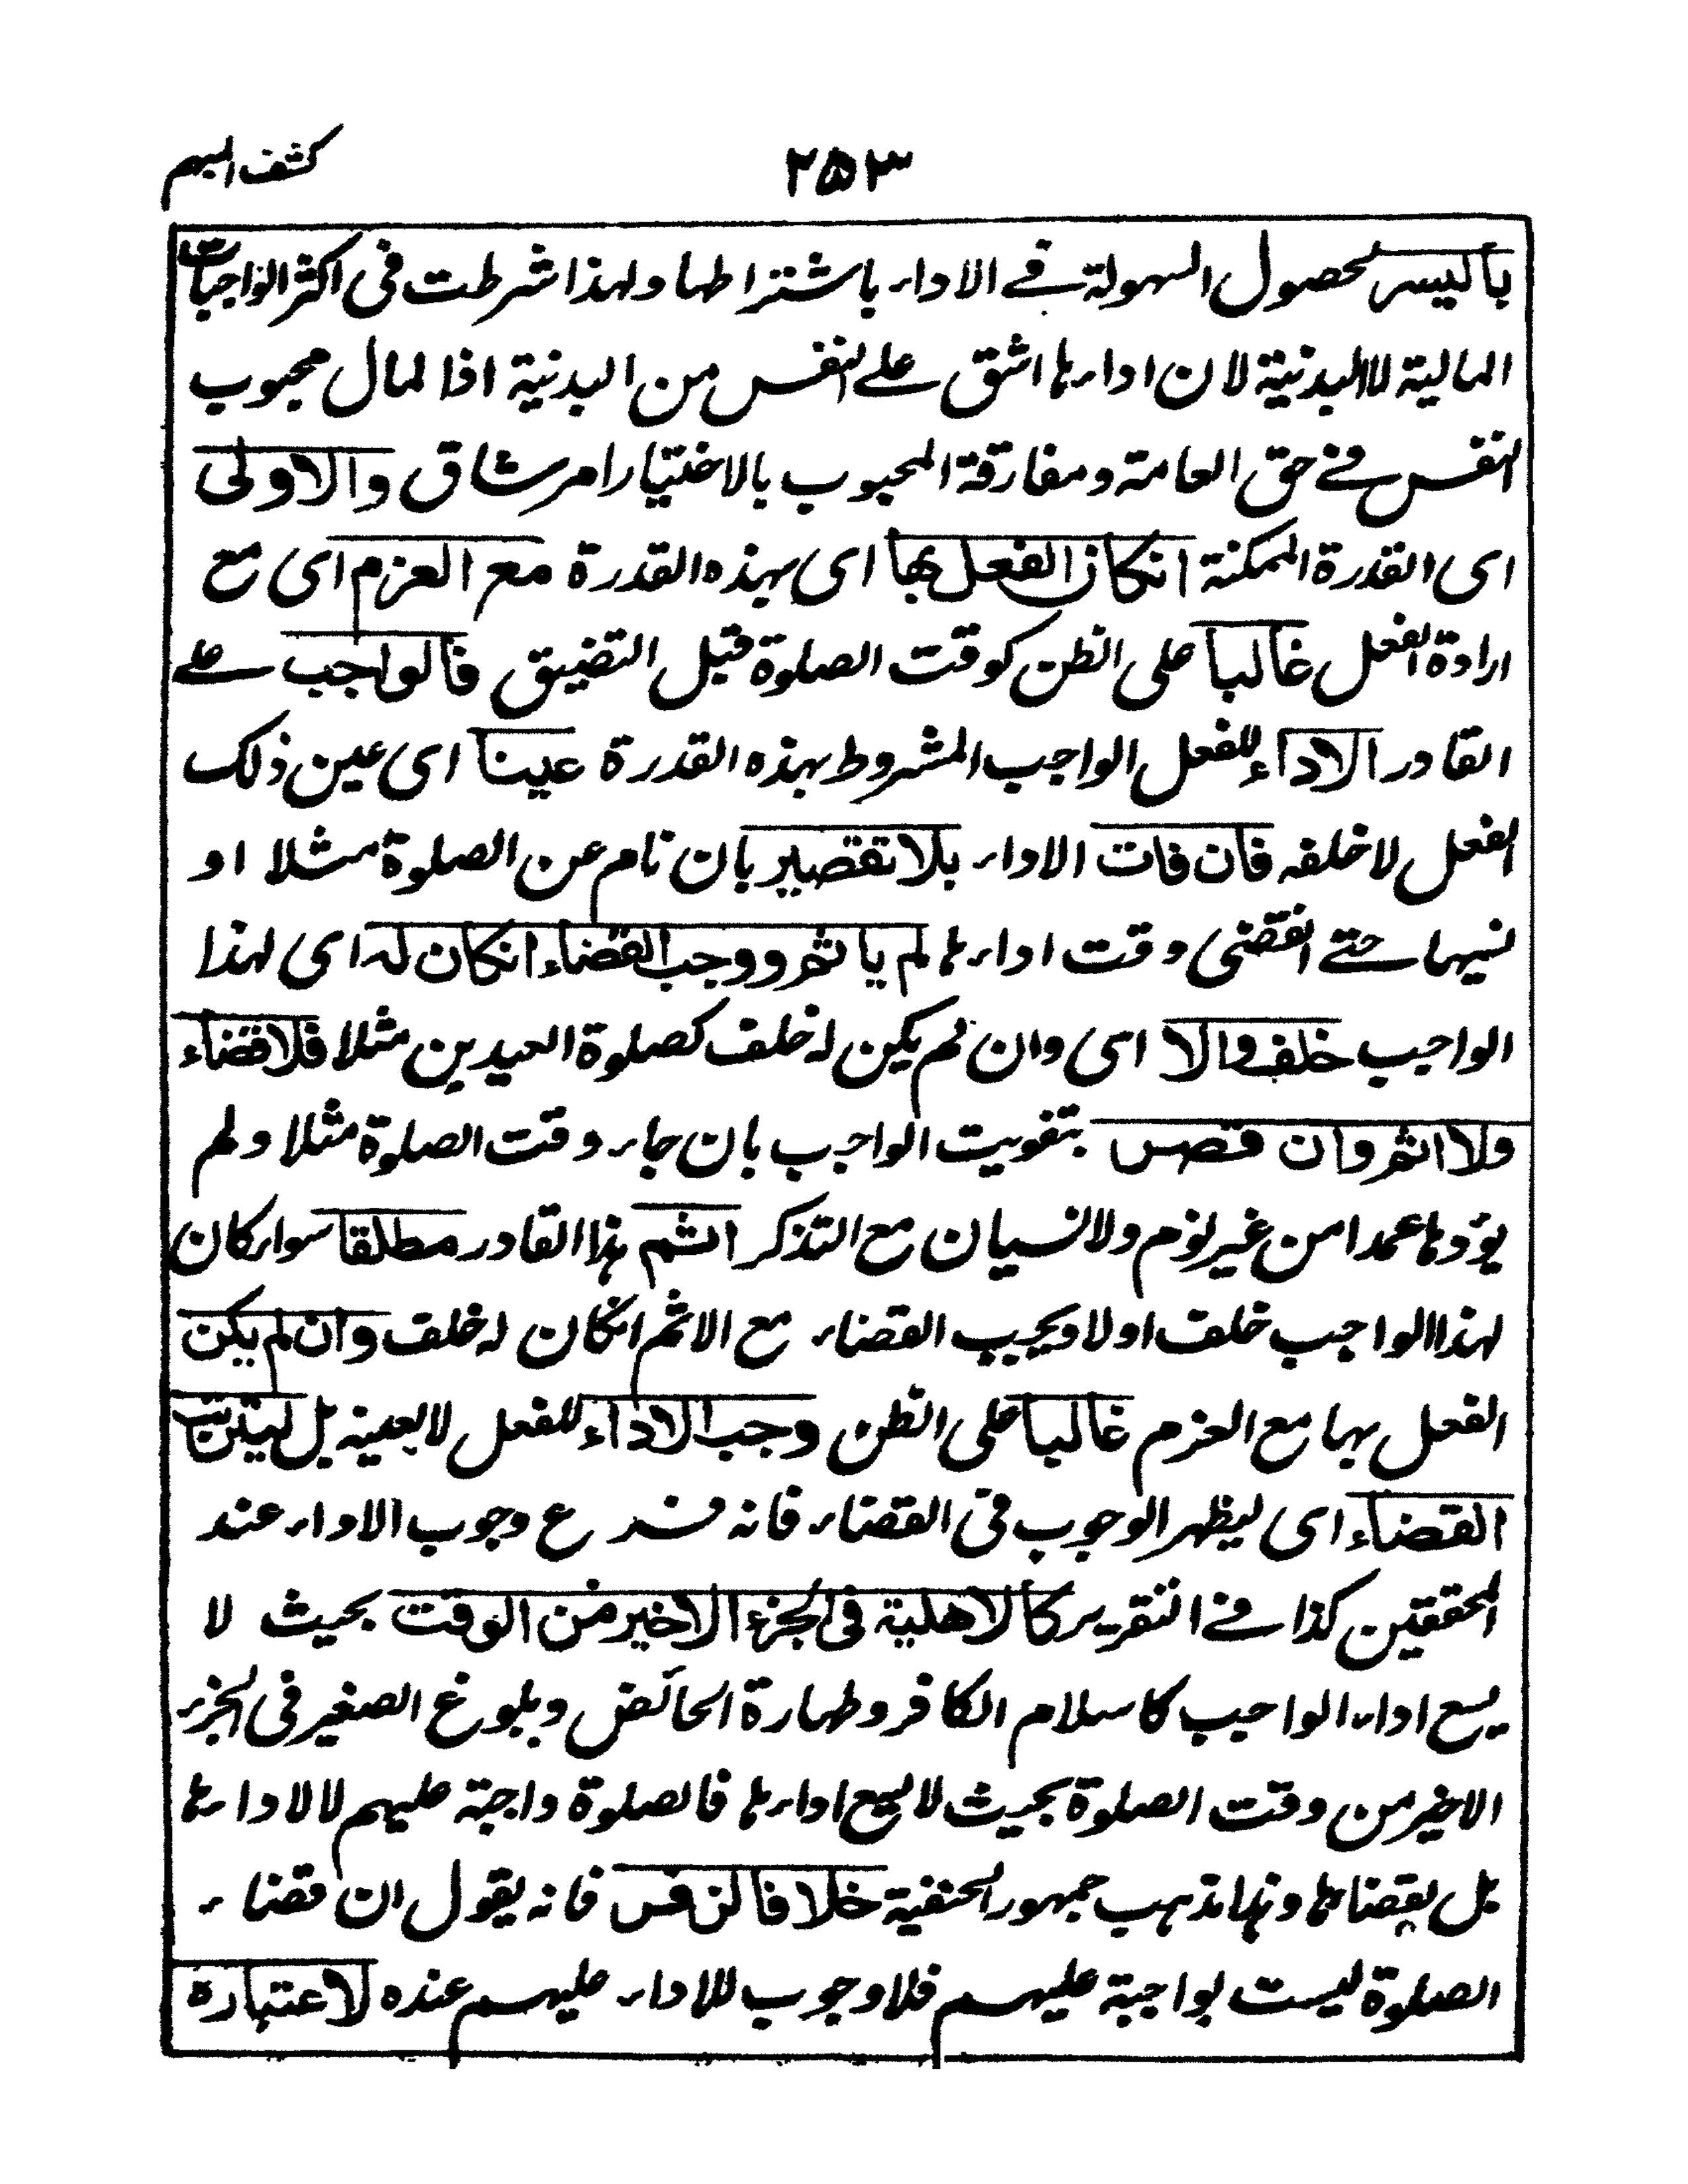 كشف المبهم
٢٥٣
باليسر لحصول السهولة فے الاداء باشتراطها ولهذا شرطت فى اكثر الواجبات
المالية لا البدنية لان اداءها اشق علے النفس من البدنية اذ المال محبوب
النفس فے حق العامة ومفارقة المحبوب بالاختيار امر شاق والاولى
اى القدرة الممكنة انكان الفعل بها اى بهذه القدرة مع العزم اى مع
ارادة الفعل غالبا على الظن كوقت الصلوة قبل التضييق فالواجب علے
القادر الاداء للفعل الواجب المشروط بهذه القدرة عينا اى عين ذلك
الفعل لا خلفه فان فات الاداء بلا تقصير بان نام عن الصلوة مثلا او
نسيها حتے انقضى وقت اداءها لم ياثم ووجب القضاء انكان له اى لهذا
الواجب خلف والا اى وان لم يكن له خلف كصلوة العيدين مثلا فلا قضاء
ولا اثم وان قصر بتفويت الواجب بان جاء وقت الصلوة مثلا ولم
يؤدها عمدا من غير نوم ولا نسيان مع التذكر اثم هذا القادر مطلقا سواء كان
لهذا الواجب خلف اولا ويجب القضاء مع الاثم انكان له خلف وان لم يكن
الفعل بها مع العزم غالبا على الظن وجب الاداء للفعل لا بعينه بل ليترتب
القضاء اى ليظهر الوجوب فى القضاء فانه فرع وجوب الاداء عند
المحققين كذا فے التقرير كالاهلية فى الجزء الاخير من الوقت بحيث لا
يسع اداء الواجب كاسلام الكافر وطهارة الحائض وبلوغ الصغير فى الجزء
الاخير من وقت الصلوة بحيث لا يسع اداءها فالصلوة واجبة عليهم لا لاداءها
بل لقضاءها وهذا مذهب جمهور الحنفية خلافا لزفر فانه يقول ان قضاء
الصلوة ليست بواجبة عليهم فلا وجوب للاداء عليهم عنده لاعتباره